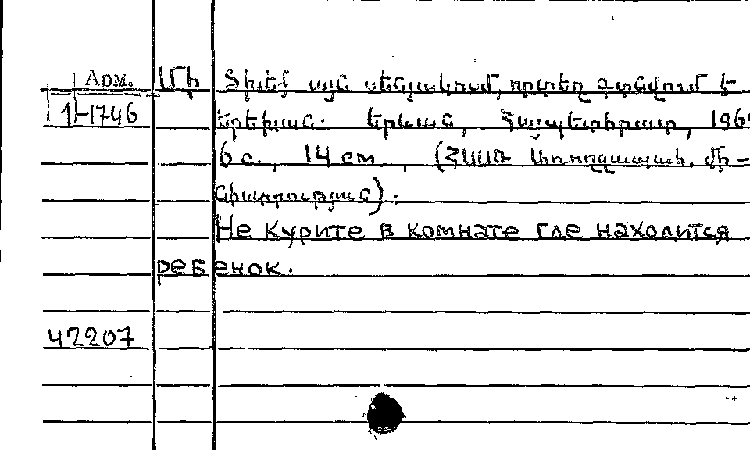 Арм. Մի ծխեք այն սենյակում, որտեղ գտնվում է
1-1746 երեխան: Երևան, Հայպետհրատ, 196
6 с., 14 см., (ՀՍՍՌ Առողջապահ. մի-
նիստրություն):
Не курите в комнате где находится
ребенок.
42207